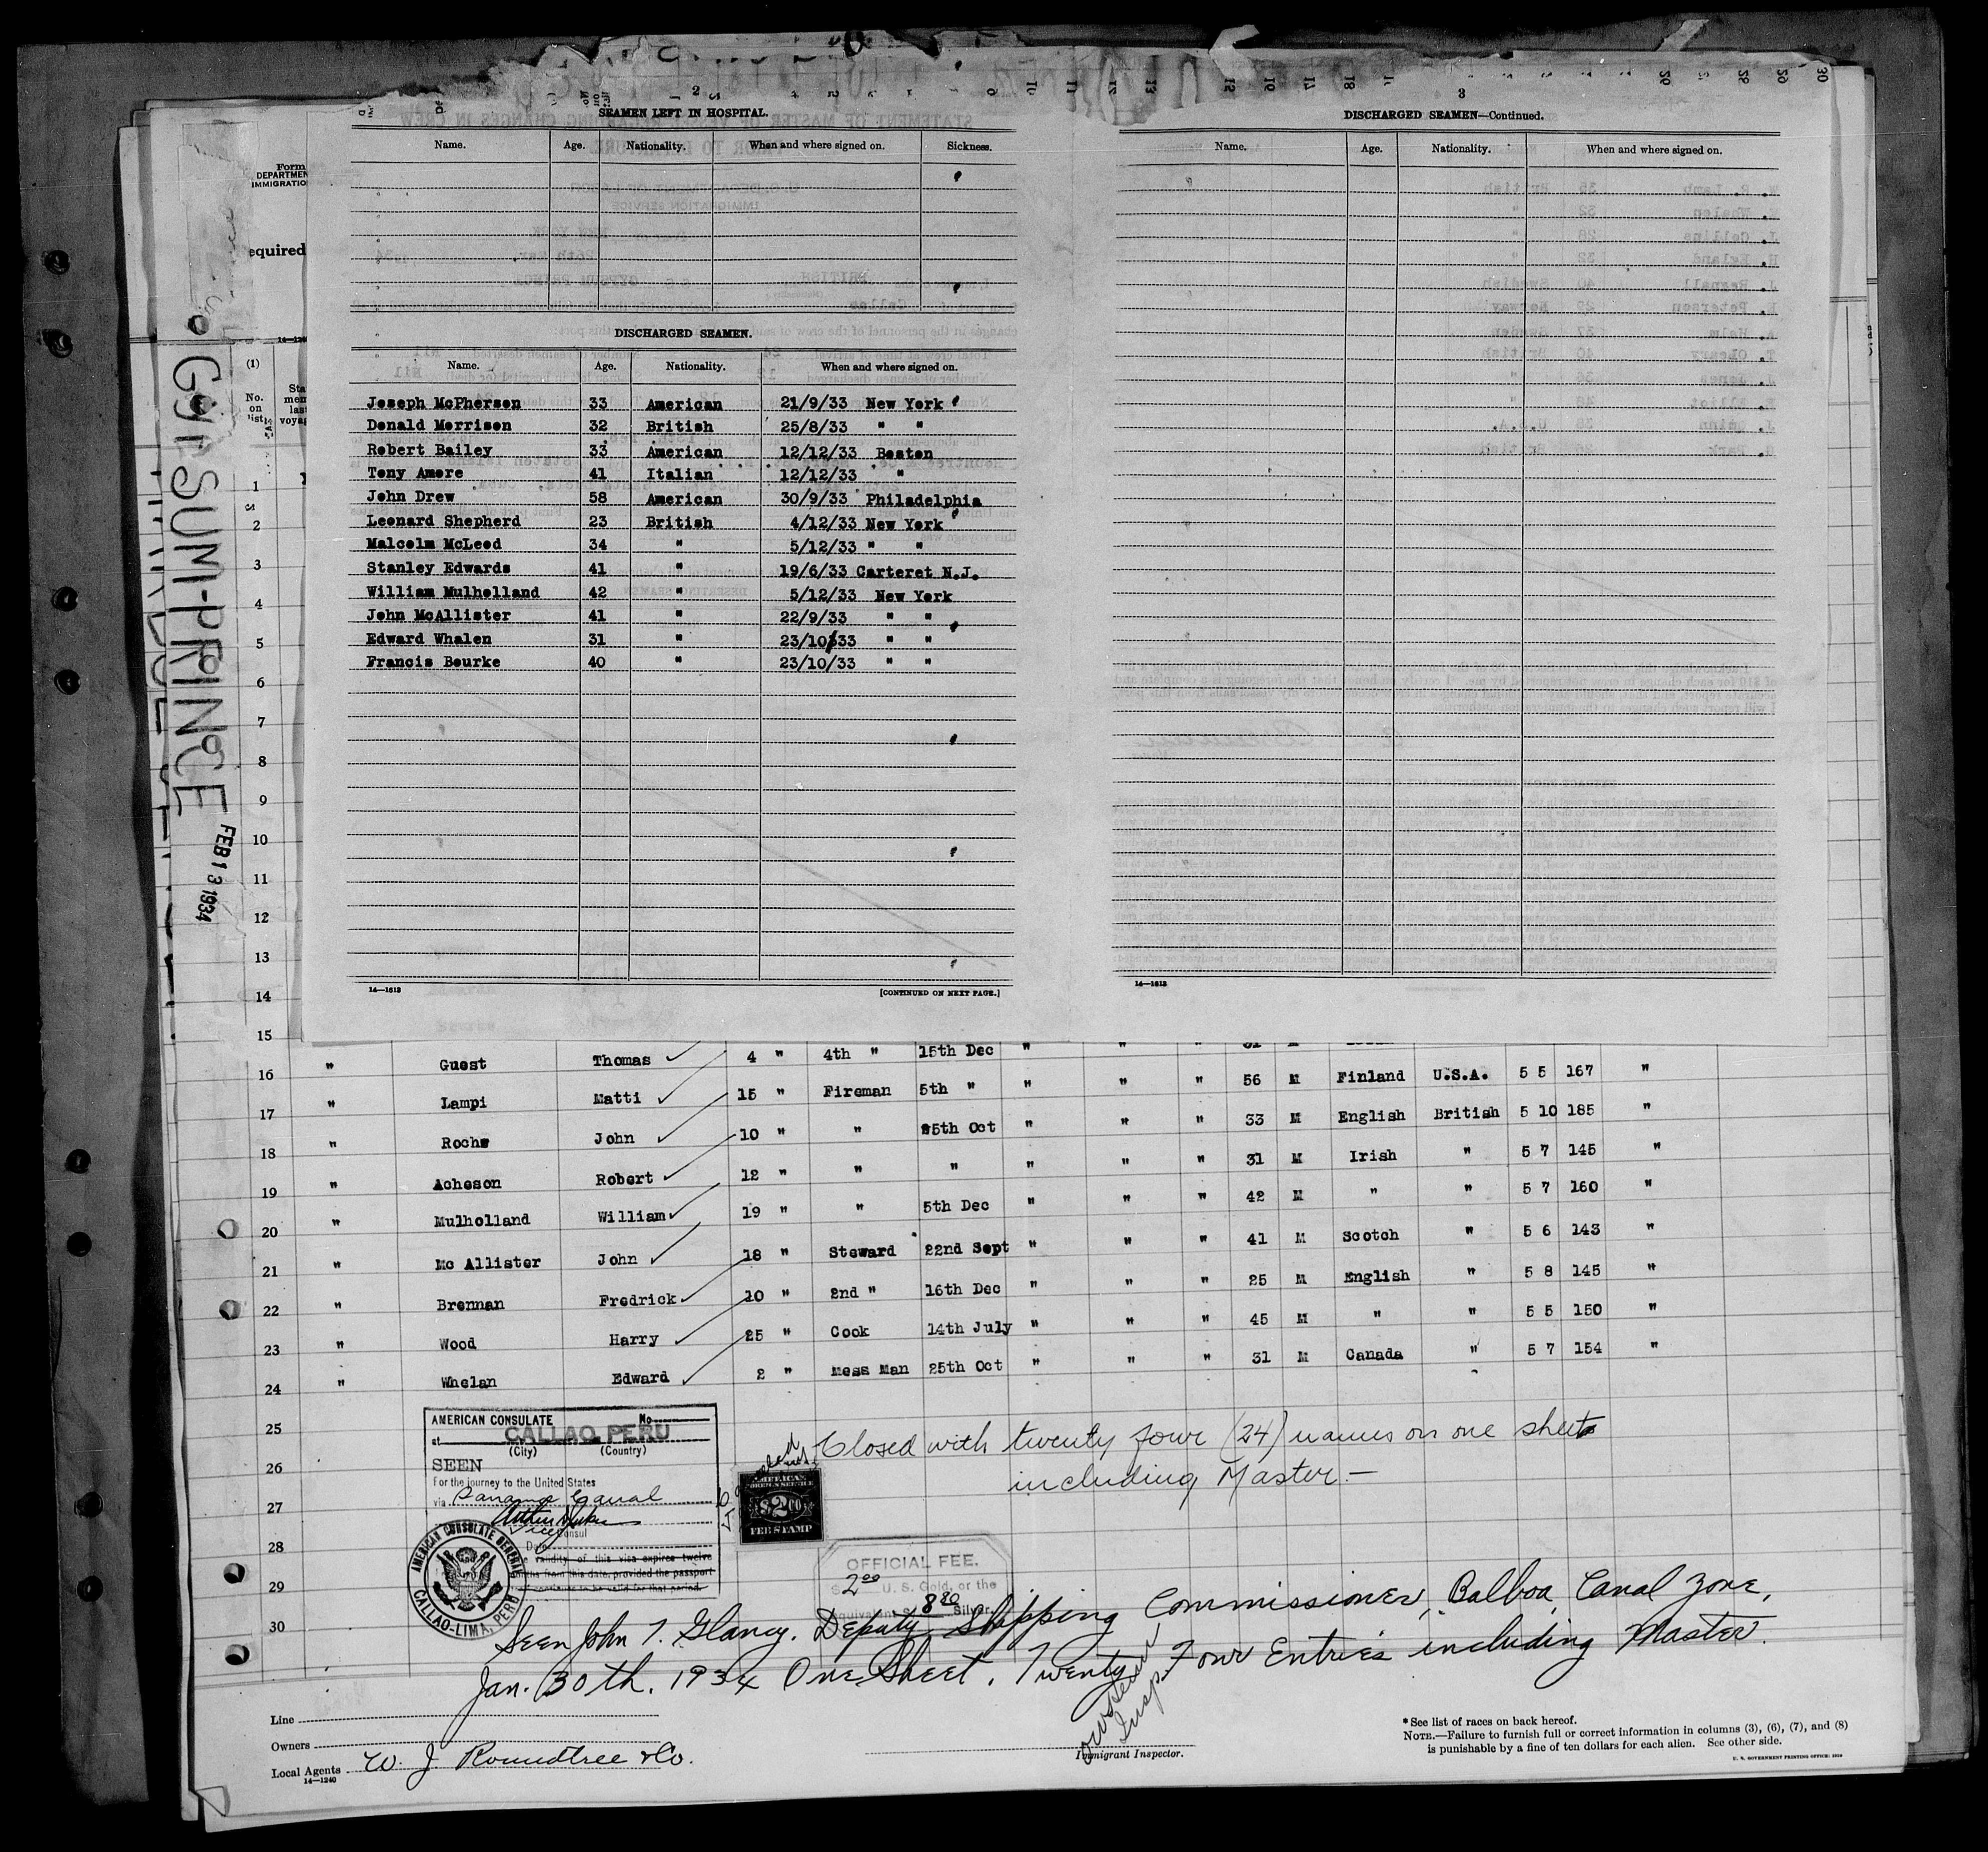 SEAMEN LEFT IN HOSPITAL.
Name. Age. Nationality. When and where signed on. Sickness.
DISCHARGED SEAMEN.
Name. Age. Nationality. When and where signed on.
Joseph McPherson 33 American 21/9/33 New York
Donald Morrison 32 British 25/8/33 " "
Robert Bailey 33 American 12/12/33 Boston
Tony Amore 41 Italian 12/12/33 "
John Drew 58 American 30/9/33 Philadelphia
Leonard Shepherd 23 British 4/12/33 New York
Malcolm McLeod 34 " 5/12/33 " "
Stanley Edwards 41 " 19/6/33 Carteret N.J.
William Mulholland 42 " 5/12/33 New York
John McAllister 41 " 22/9/33 " "
Edward Whalen 31 " 23/10/33 " "
Francis Bourke 40 " 23/10/33 " "
14—1613
[CONTINUED ON NEXT PAGE.]
3
DISCHARGED SEAMEN—Continued.
Name. Age. Nationality. When and where signed on.
14—1613
Form
DEPARTMEN
IMMIGRATIO
equired
GYPSUM-PRINCE
FEB 13 1934
(1)
No. on list
1
2
3
4
5
6
7
8
9
10
11
12
13
14
15
16 " Guest Thomas 4 " 4th " 15th Dec " " "
17 " Lampi Matti 15 " Fireman 5th " " " " 56 M Finland U.S.A. 5 5 167 "
18 " Roche John 10 " " 25th Oct " " " 33 M English British 5 10 185 "
19 " Acheson Robert 12 " " " " " " 31 M Irish " 5 7 145 "
20 " Mulholland William 19 " " 5th Dec " " " 42 M " " 5 7 160 "
21 " Mc Allister John 18 " Steward 22nd Sept " " " 41 M Scotch " 5 6 143 "
22 " Brennan Fredrick 10 " 2nd " 16th Dec " " " 25 M English " 5 8 145 "
23 " Wood Harry 25 " Cook 14th July " " " 45 M " " 5 5 150 "
24 " Whelan Edward 2 " Mess Man 25th Oct " " " 31 M Canada " 5 7 154 "
25
26
27
28
29
30
AMERICAN CONSULATE No.
at CALLAO, PERU
(City) (Country)
SEEN
For the journey to the United States
via Panama Canal
Vice Consul
Date
validity of this visa expires twelve
months from this date, provided the passport
continues to be valid for that period.
AMERICAN CONSULATE GENERAL
CALLAO-LIMA, PERU
AMERICAN
FOREIGN SERVICE
$2.00
FEE STAMP
Closed with twenty four (24) names on one sheet
including Master—
OFFICIAL FEE.
$ 2.00 U. S. Gold, or the
equivalent 8.80 Silver
Seen John T. Glancy. Deputy Shipping Commissioner, Balboa, Canal Zone,
Jan. 30th. 1934 One Sheet. Twenty Four Entries including Master.
Insp.
Line
Owners
Local Agents W. J. Roundtree & Co.
14—1240
Immigrant Inspector.
* See list of races on back hereof.
NOTE.—Failure to furnish full or correct information in columns (3), (6), (7), and (8)
is punishable by a fine of ten dollars for each alien. See other side.
U. S. GOVERNMENT PRINTING OFFICE: